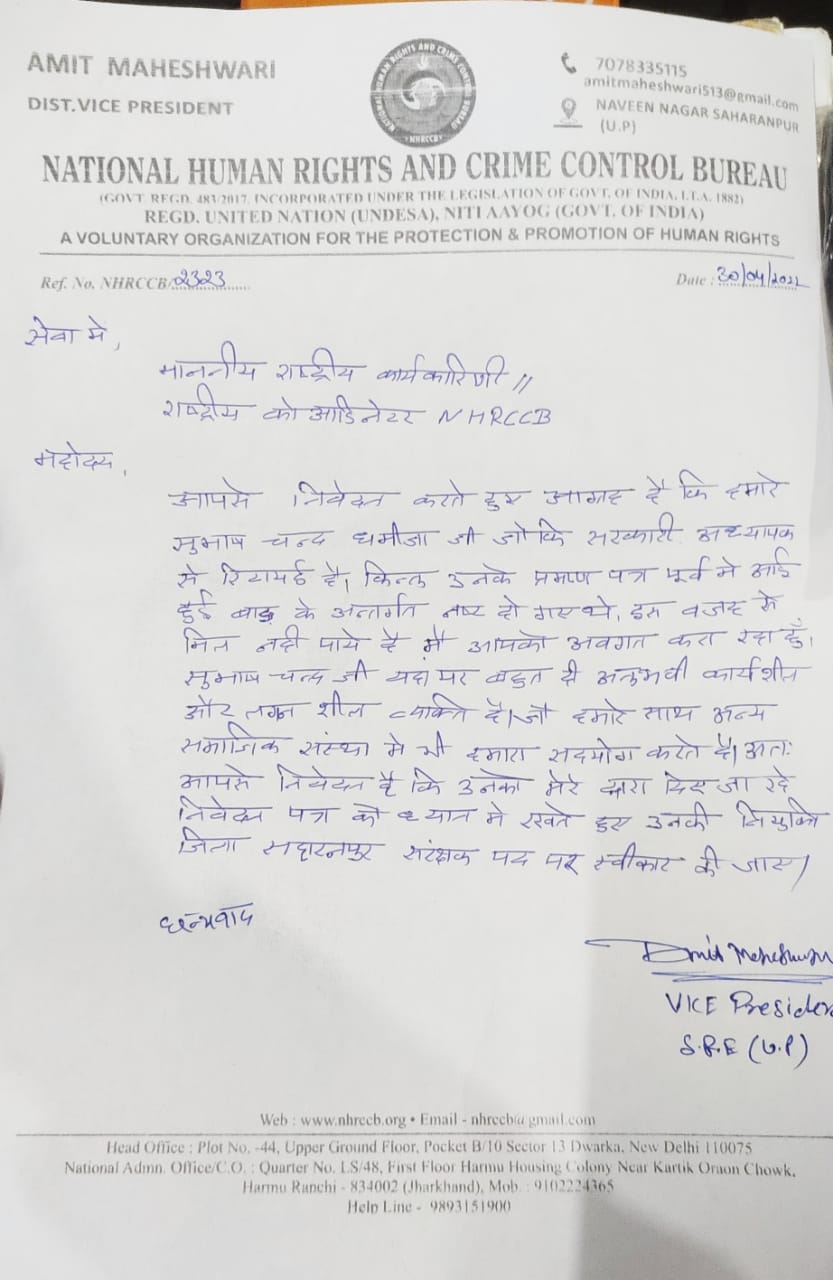 AMIT MAHESHWARI
DIST.VICE PRESIDENT
NATIONAL HUMAN RIGHTS AND CRIME CONTROL BUREAU
NHRCCB
7078335115
amitmaheshwari513@gmail.com
NAVEEN NAGAR SAHARANPUR
(U.P)
NATIONAL HUMAN RIGHTS AND CRIME CONTROL BUREAU
(GOVT. REGD. 483/2017, INCORPORATED UNDER THE LEGISLATION OF GOVT. OF INDIA, I.T.A. 1882)
REGD. UNITED NATION (UNDESA), NITI AAYOG (GOVT. OF INDIA)
A VOLUNTARY ORGANIZATION FOR THE PROTECTION & PROMOTION OF HUMAN RIGHTS
Ref. No. NHRCCB/2323
Date : 30/04/2022
सेवा मे,
माननीय राष्ट्रीय कार्यकारिणी //
राष्ट्रीय को आडिनेटर NHRCCB
महोदय,
आपसे निवेदन करते हुए आग्रह है कि हमारे
सुभाष चन्द धमीजा जी जोकि सरकारी अध्यापक
से रिटायर्ड है। किन्तु उनके प्रमाण पत्र पूर्व मे आई
हुई बाढ़ के अन्तर्गत नष्ट हो गए थे, इस वजह से
मिल नही पाये है मैं आपको अवगत करा रहा हुँ।
सुभाष चन्द जी यहां पर बहुत ही अनुभवी कार्यशील
और लग्न शील व्यक्ति है। जो हमारे साथ अन्य
समाजिक संस्था मे भी हमारा सहयोग करते है। अतः
आपसे निवेदन है कि उनको मेरे द्वारा दिए जा रहे
निवेदन पत्र को ध्यान मे रखते हुए उनकी नियुक्ति
जिला सहारनपुर संरक्षक पद पर स्वीकार की जाए।
धन्यवाद
Amit Maheshwari
VICE Presiden
S.R.E (U.P)
Web : www.nhrccb.org • Email - nhrccb@gmail.com
Head Office : Plot No. -44, Upper Ground Floor, Pocket B/10 Sector 13 Dwarka, New Delhi 110075
National Admn. Office/C.O. : Quarter No. LS/48, First Floor Harmu Housing Colony Near Kartik Oraon Chowk,
Harmu Ranchi - 834002 (Jharkhand), Mob. : 9102224365
Help Line - 9893151900